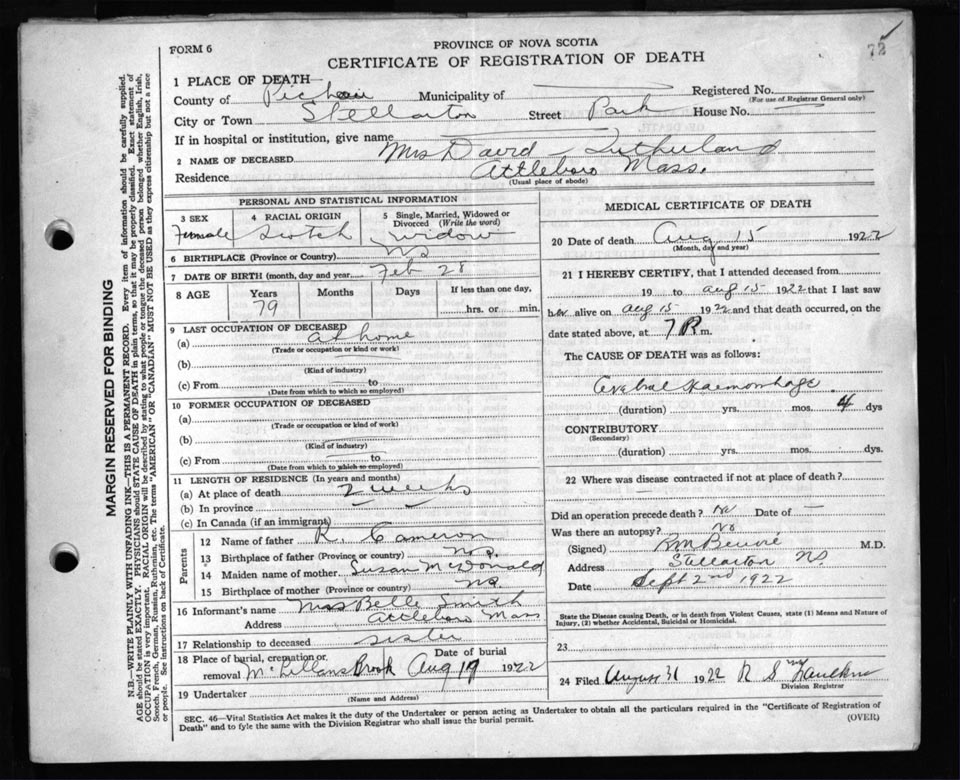 72
FORM 6
PROVINCE OF NOVA SCOTIA
CERTIFICATE OF REGISTRATION OF DEATH
1 PLACE OF DEATH
County of Pictou Municipality of Registered No.
(For use of Registrar General only)
City or Town Stellarton Street Park House No.
If in hospital or institution, give name
2 NAME OF DECEASED Mrs David Sutherland
Residence Attleboro Mass.
(Usual place of abode)
PERSONAL AND STATISTICAL INFORMATION
3 SEX
Female
4 RACIAL ORIGIN
Scotch
5 Single, Married, Widowed or
Divorced (Write the word)
widow
6 BIRTHPLACE (Province or Country) NS
7 DATE OF BIRTH (month, day and year) Feb 28
8 AGE Years Months Days If less than one day,
79 hrs. or min.
9 LAST OCCUPATION OF DECEASED
(a) at home
(Trade or occupation or kind or work)
(b)
(Kind of industry)
(c) From to
(Date from which to which so employed)
10 FORMER OCCUPATION OF DECEASED
(a)
(Trade or occupation or kind of work)
(b)
(Kind of industry)
(c) From to
(Date from which to which so employed)
11 LENGTH OF RESIDENCE (In years and months)
(a) At place of death 2 weeks
(b) In province
(c) In Canada (if an immigrant)
Parents
12 Name of father R. Cameron
13 Birthplace of father (Province or country) N.S.
14 Maiden name of mother Susan McDonald
15 Birthplace of mother (Province or country) NS.
16 Informant's name Mrs Belle Smith
Address Attleboro Mass
17 Relationship to deceased sister
18 Place of burial, cremation or Date of burial
removal McLellans Brook Aug 19 1922
19 Undertaker
(Name and Address)
MEDICAL CERTIFICATE OF DEATH
20 Date of death Aug 15 1922
(Month, day and year)
21 I HEREBY CERTIFY, that I attended deceased from
19 to Aug 15 1922 that I last saw
her alive on Aug 15 1922 and that death occurred, on the
date stated above, at 7 P m.
The CAUSE OF DEATH was as follows:
Cerebral Haemorrhage
(duration) yrs. mos. 4 dys
CONTRIBUTORY
(Secondary)
(duration) yrs. mos. dys.
22 Where was disease contracted if not at place of death?
Did an operation precede death? No Date of —
Was there an autopsy? No
(Signed) M.D.
Address Stellarton NS
Date Sept 2nd 1922
State the Disease causing Death, or in death from Violent Causes, state (1) Means and Nature of
Injury, (2) whether Accidental, Suicidal or Homicidal.
23
24 Filed August 31 1922 R S
Division Registrar
SEC. 46—Vital Statistics Act makes it the duty of the Undertaker or person acting as Undertaker to obtain all the particulars required in the "Certificate of Registration of
Death" and to fyle the same with the Division Registrar who shall issue the burial permit. (OVER)
MARGIN RESERVED FOR BINDING
N.B.—WRITE PLAINLY WITH UNFADING INK—THIS IS A PERMANENT RECORD. Every item of information should be carefully supplied.
AGE should be stated EXACTLY. PHYSICIANS should STATE CAUSE OF DEATH in plain terms, so that it may be properly classified. Exact statement of
OCCUPATION is very important. RACIAL ORIGIN will be described by stating to what people or tongue the deceased person belonged whether English, Irish,
Scotch, French, German, Russian, Ruthenian, etc. The terms "AMERICAN" or "CANADIAN" MUST NOT BE USED as they express citizenship but not a race
or people. See instructions on back of Certificate.